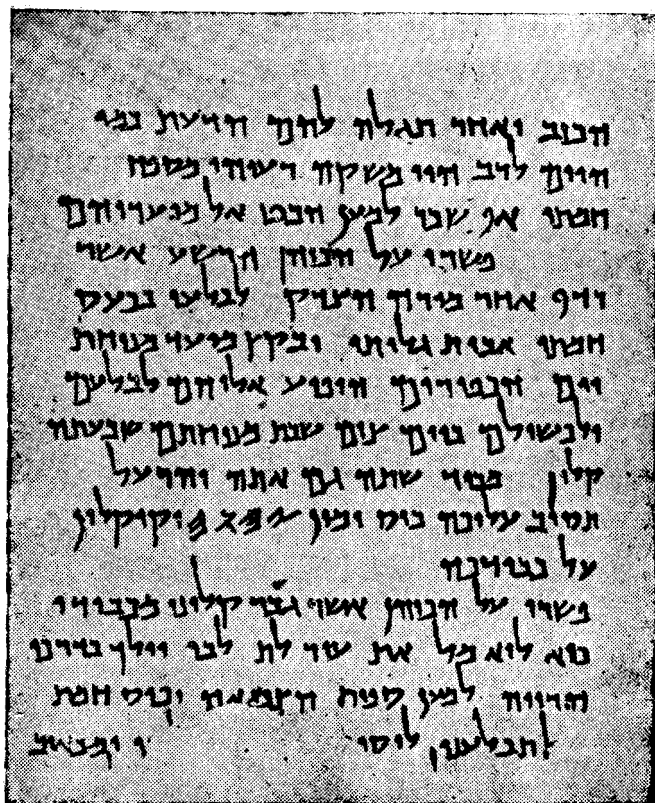 הכזב ואחר תגלה להם הדעת כמי
הים לרב הוי משקה רעיהו מספח
חמתו אף שכר למען הבט אל מועדיהם
פשרו על הכוהן הרשע אשר
רדף אחר מורה הצדק לבלעו בכעס
חמתו אבית גלותו ובקץ מועד מנוחת
יום הכפורים הופיע אליהם לבלעם
ולכשילם ביום צום שבת מנוחתם שבעתה
קלון מכבוד שתה גם אתה והרעל
תסוב עליכה כוס ימין 𐤉𐤄𐤅𐤄 וקיקלון
על כבודכה
פשרו על הכוהן אשר גבר קלונו מכבודו
כיא לוא מל את עורלת לבו וילך בדרכי
הרויה למען ספות הצמאה וכוס חמת
תבלענו לוסי ו ומכאוב